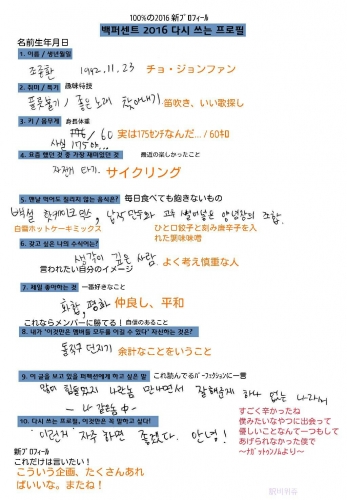 100%の2016 新プロフィール
백퍼센트 2016 다시 쓰는 프로필
名前生年月日
1. 이름 / 생년월일
조종환 1992.11.23 チョ・ジョンファン
2. 취미 / 특기 趣味特技
플룻불기 / 좋은노래 찾아내기. 笛吹き、いい歌探し
3. 키 / 몸무게 身長体重
/ 60 実は175センチなんだ... / 60キロ
사실 175야...
4. 요즘 했던 것 중 가장 재미있던 것 最近の楽しかったこと
자전거 타기. サイクリング
5. 맨날 먹어도 질리지 않는 음식은? 毎日食べても飽きないもの
백설 핫케이크믹스, 납작만두와 고추 썰어넣은 양념장의 조합.
白雪ホットケーキミックス ひと口餃子と刻み唐辛子を入れた薬味味噌
6. 갖고 싶은 나의 수식어는?
생각이 깊은 사람. よく考え慎重な人
言われたい自分のイメージ
7. 제일 좋아하는 것 一番好きなこと
화합, 평화 仲良し、平和
これならメンバーに勝てる! 自信のあること
8. 내가 "이것만은 멤버들 모두를 이길 수 있다" 자신하는 것은?
돌직구 던지기 余計なことをいうこと
9. 이 글을 보고 있을 퍼펙션에게 하고 싶은 말 これ読んでるパーフェクションに一言
많이 힘들었지 나같은놈 만나면서 잘해준게 하나 없는 나라서
- 나 같은놈 中 -
すごく辛かったね
僕みたいなやつに出会って
優しいことなんて一つもして
あげられなかった僕で
10. 다시 쓰는 프로필, 이것만은 꼭 말하고 싶다!
이런거 자주 하면 좋겠다. 안녕!
新プロフィール
これだけは言いたい!
こういう企画、たくさんあれ
ばいいな。またね!